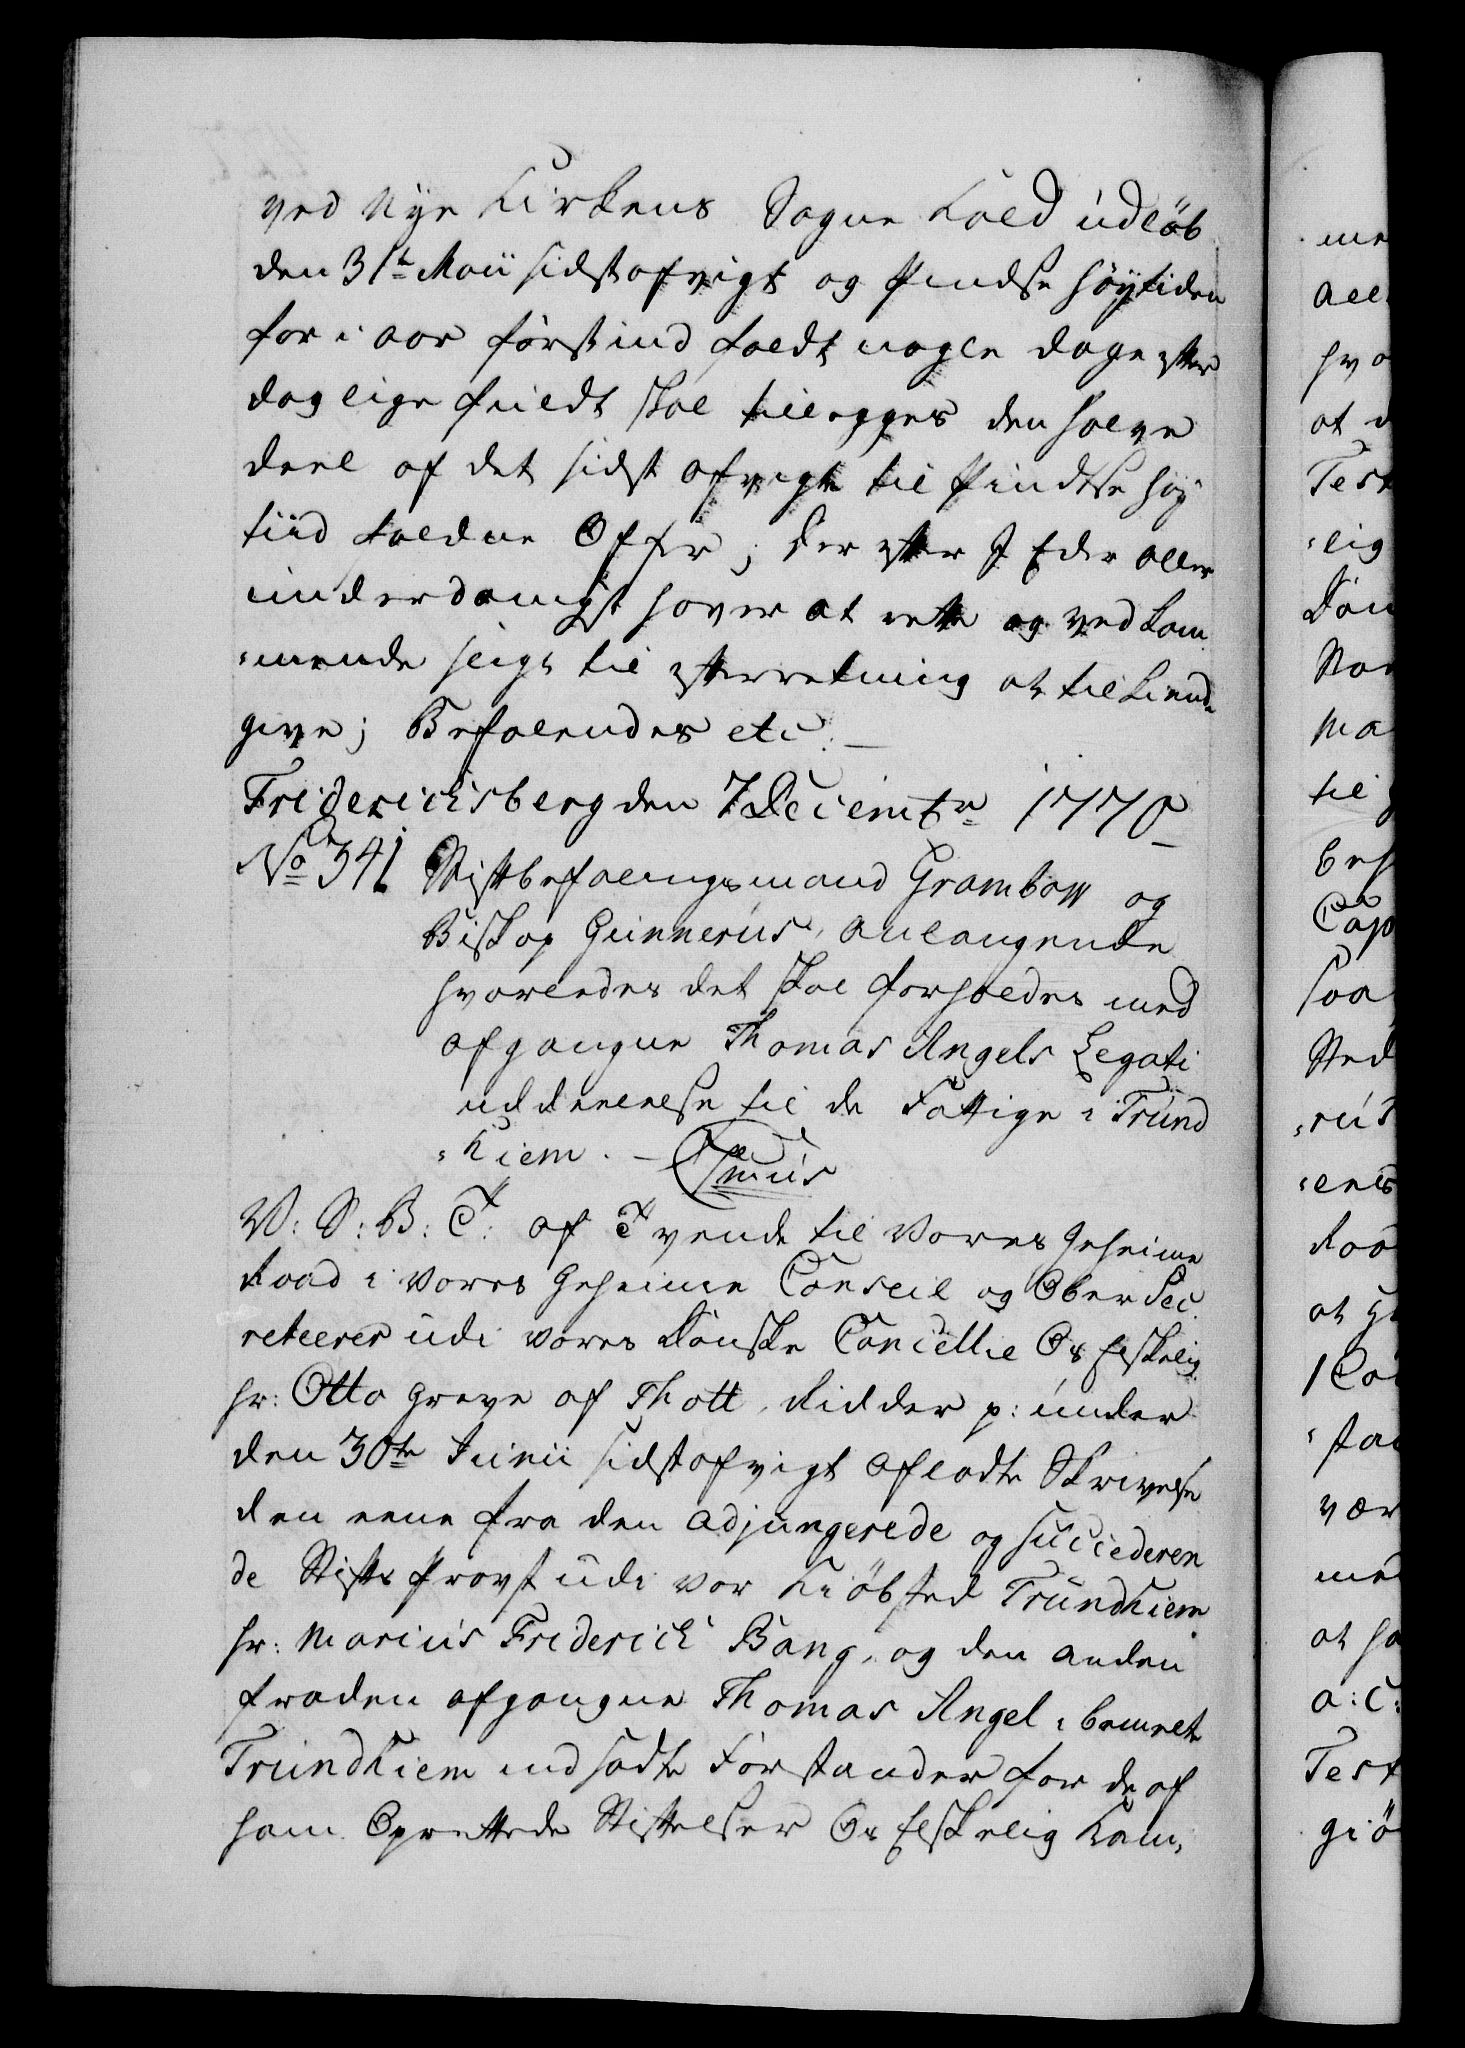 ved Nye Kirkens Sogne Kald udløb
den 31te Maii sidstafvigt og Pindse Høytiden
for i aar først ind faldt nogle dage efter
daglige fuldt skal tillegges den halve
deel af det sidst afvigte til Pindtse Høy
tiid faldne Offer; Der efter I Eder aller
underdanigst haver at rette og vedkom
-mende sligt til efterretning at tilkiende
give; Befalendes etc:
Friderichsberg den 7 Decembr 1770
No 341 Stiftbefalingsmand Grambow og
Biskop Gunnerus, anlangende
hvorledes det skal forholdes med
afgangne Thomas Angels Legati
uddeelelse til de Fattige i Trund
-hiem. —
V: S: B: T: af Tvende til Vores Geheime
Raad i Vores Geheime Conseil og Ober Sec
reteerer udi Vores Danske Cancellie Os Elskelig
Hr: Otto Greve af Thott, Ridder p: under
den 30te Junii sidstafvigt afladte Skrivelse
den eene fra den adjungerede og succederen
de Stifts Provst udi vor Kiøbsted Trundhiem
Hr: Marius Friderich Bang, og den anden
fra den afgangne Thomas Angel i bemelte
Trundhiem indsadte Forstander for de af
ham Oprettede Stiftelser Os Elskelig Kam,
me
all
hvo
at d
Test
-lig
Dan
Nor
Ma
til
beh
Cap
saa
Sted
-rus
-enes
Raa
at
-sta
vær
med
at ha
a: c:
Test
giø